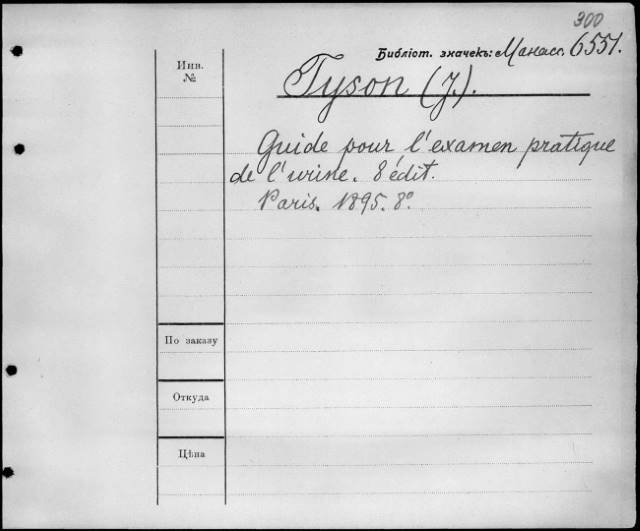 300
Библіот. значекъ: Манасс. 6551.
Инв.
№
Tyson (J.).
Guide pour l'examen pratique
de l'urine. 8 édit.
Paris. 1895. 8º
По заказу
Откуда
Цѣна